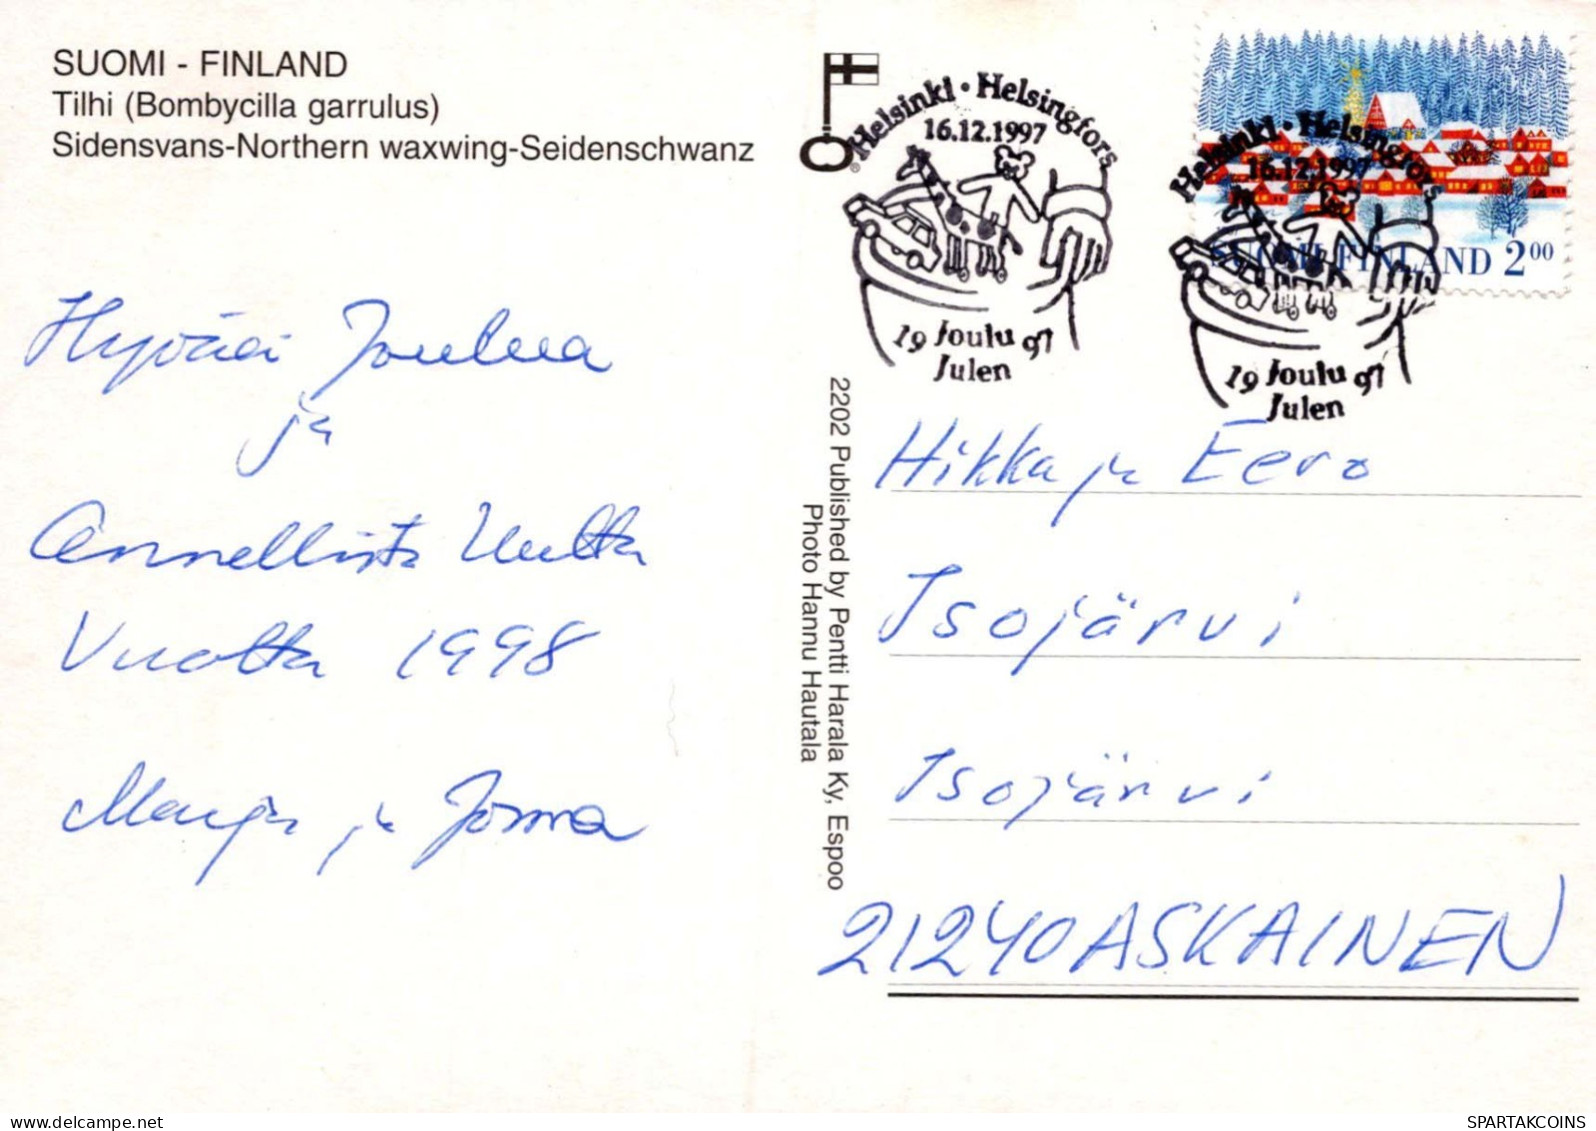 SUOMI - FINLAND
Tilhi (Bombycilla garrulus)
Sidensvans-Northern waxwing-Seidenschwanz
Hyvää Joulua
ja
Onnellista Uutta
Vuotta 1998
Marja ja Jorma
Helsinki • Helsingfors
16.12.1997
19 Joulu 97
Julen
Helsinki • Helsingfors
16.12.1997
19 Joulu 97
Julen
SUOMI FINLAND 2.00
2202 Published by Pentti Harala Ky, Espoo
Photo Hannu Hautala
Hikka ja Eero
Isojärvi
Isojärvi
21240 ASKAINEN
www.delcampe.net
SPARTAKCOINS